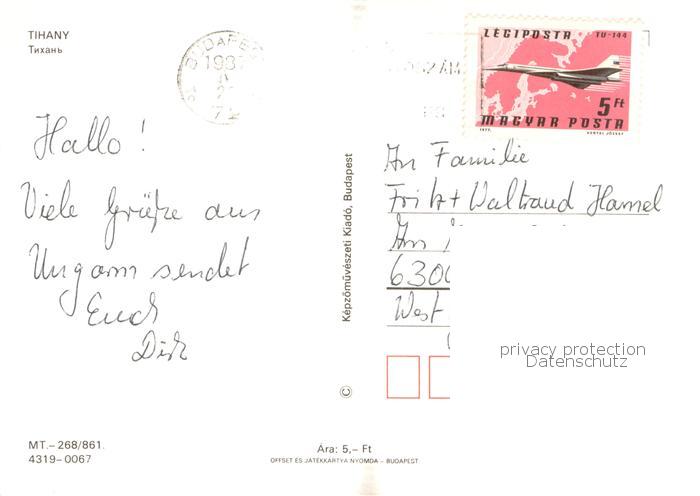 TIHANY
Тихань
BUDAPEST
72
LÉGIPOSTA TU-144
5 Ft
MAGYAR POSTA
1977. KERTÉL JÓZSEF
Hallo !
Viele Grüße aus
Ungarn sendet
Euch
Dirk
Képzőművészeti Kiadó, Budapest
©
An Familie
Fritz + Waltraud Hamel
Am
6300
West
privacy protection
Datenschutz
MT.– 268/861.
4319–0067
Ára: 5,– Ft
OFFSET ÉS JÁTÉKKÁRTYA NYOMDA – BUDAPEST